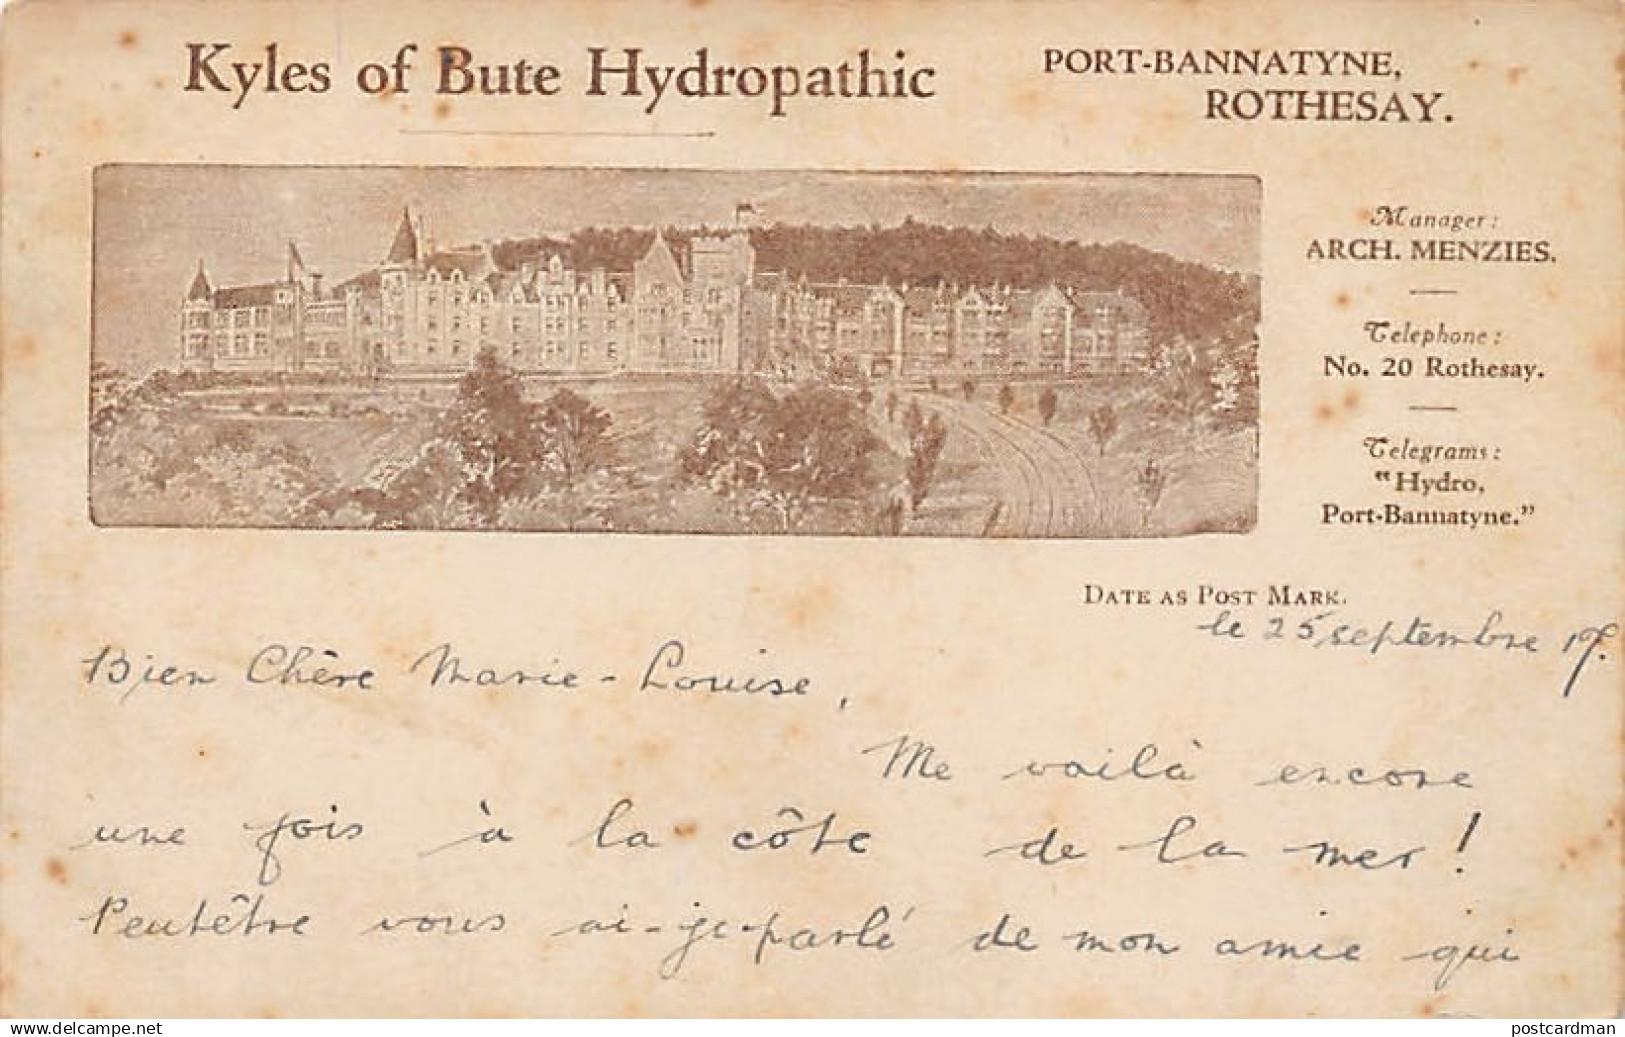 Kyles of Bute Hydropathic
PORT-BANNATYNE,
ROTHESAY.
Manager:
ARCH. MENZIES.
Telephone:
No. 20 Rothesay.
Telegrams:
"Hydro,
Port-Bannatyne."
DATE AS POST MARK.
le 25 septembre 17.
Bien Chère Marie-Louise,
Me voilà encore
une fois à la côte de la mer!
Peutêtre vous ai-je-parlé de mon amie qui
www.delcampe.net
postcardman